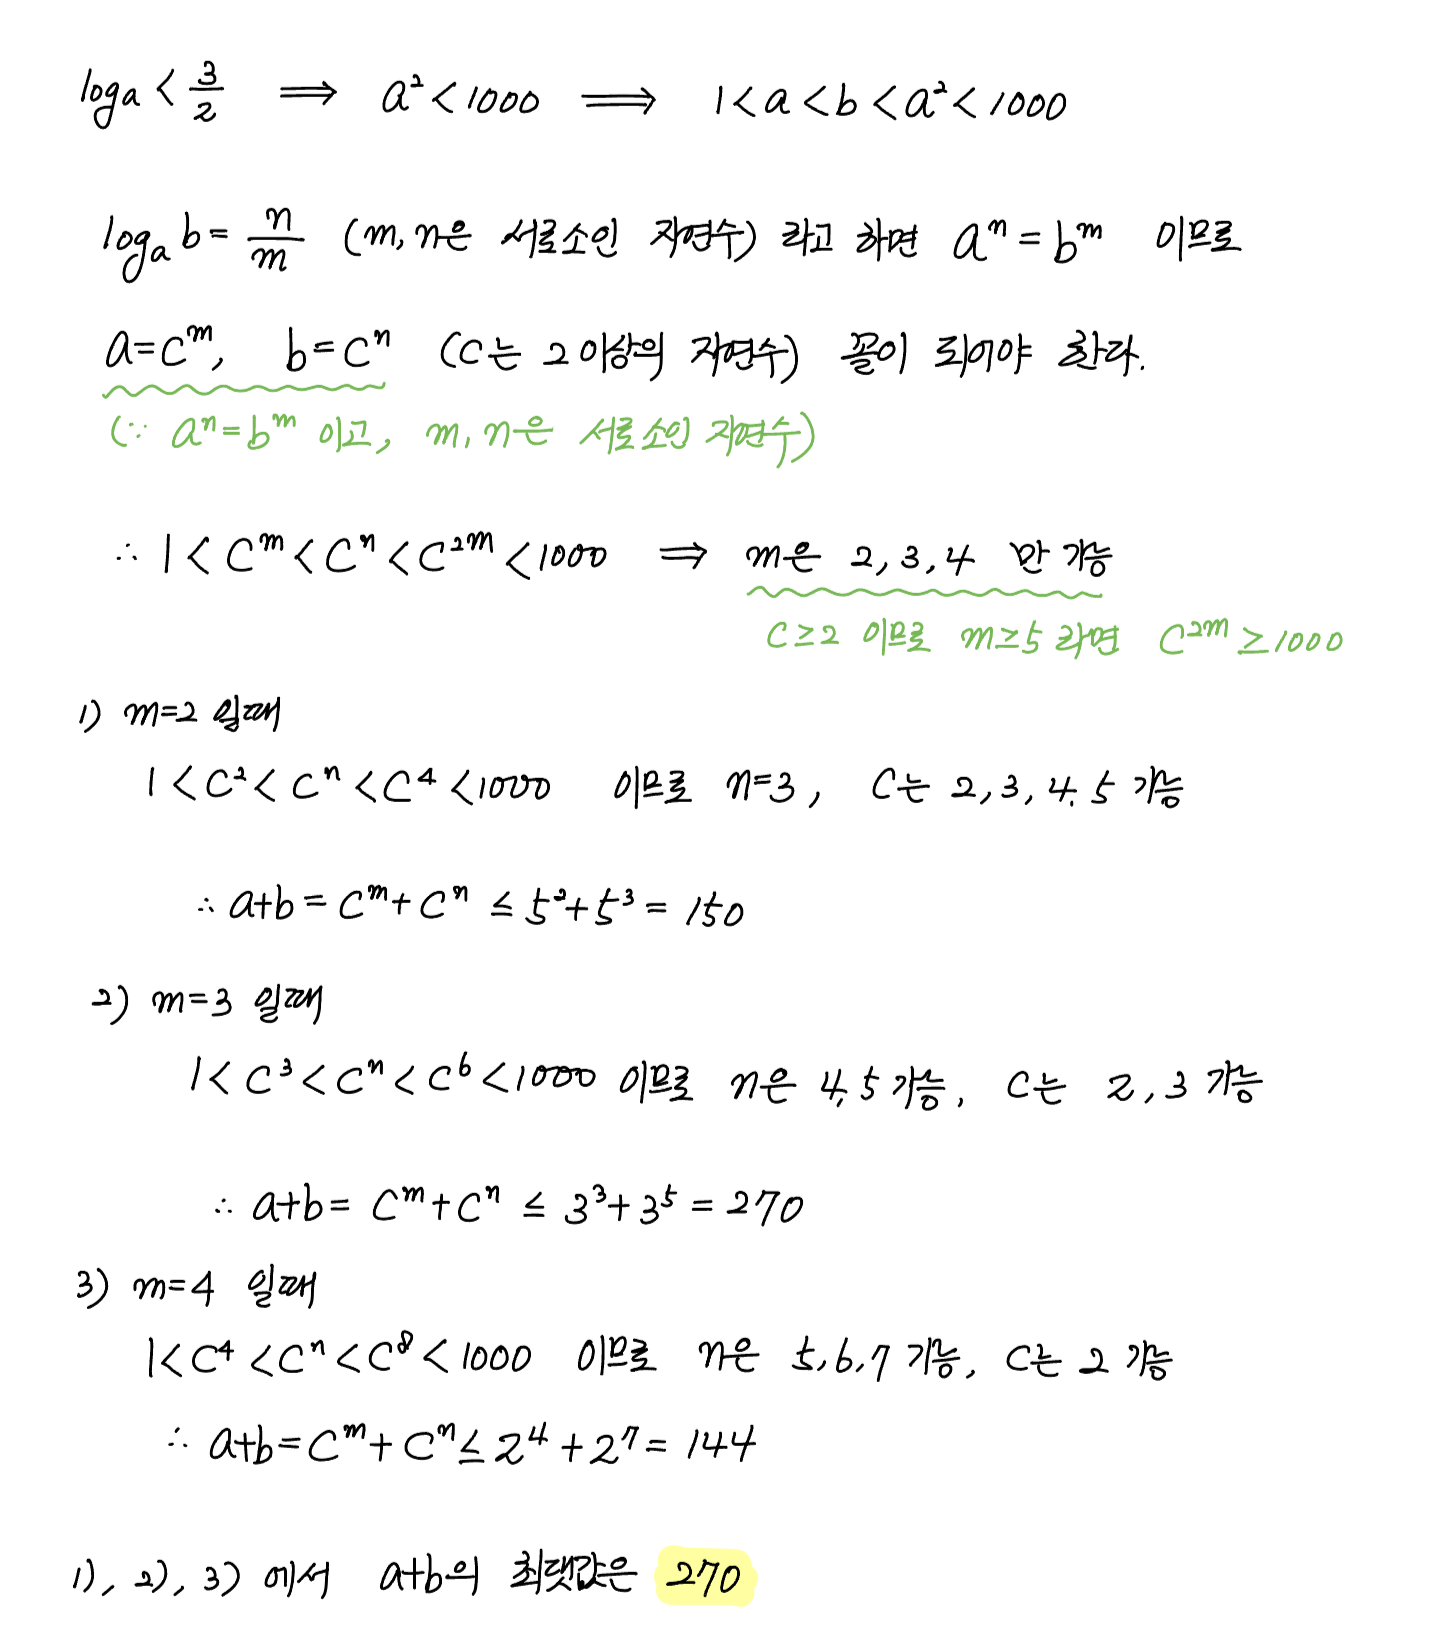 log a < 3/2 ⟹ a² < 1000 ⟹ 1 < a < b < a² < 1000
logₐ b = n/m (m, n은 서로소인 자연수) 라고 하면 aⁿ = bᵐ 이므로
a = cᵐ, b = cⁿ (c는 2 이상의 자연수) 꼴이 되어야 한다.
(∵ aⁿ = bᵐ 이고, m, n은 서로소인 자연수)
∴ 1 < cᵐ < cⁿ < c²ᵐ < 1000 ⟹ m은 2, 3, 4 만 가능
c ≥ 2 이므로 m ≥ 5 라면 c²ᵐ ≥ 1000
1) m=2 일때
1 < c² < cⁿ < c⁴ < 1000 이므로 n=3, c는 2, 3, 4, 5 가능
∴ a+b = cᵐ + cⁿ ≤ 5² + 5³ = 150
2) m=3 일때
1 < c³ < cⁿ < c⁶ < 1000 이므로 n은 4, 5 가능, c는 2, 3 가능
∴ a+b = cᵐ + cⁿ ≤ 3³ + 3⁵ = 270
3) m=4 일때
1 < c⁴ < cⁿ < c⁸ < 1000 이므로 n은 5, 6, 7 가능, c는 2 가능
∴ a+b = cᵐ + cⁿ ≤ 2⁴ + 2⁷ = 144
1), 2), 3) 에서 a+b의 최댓값은 270